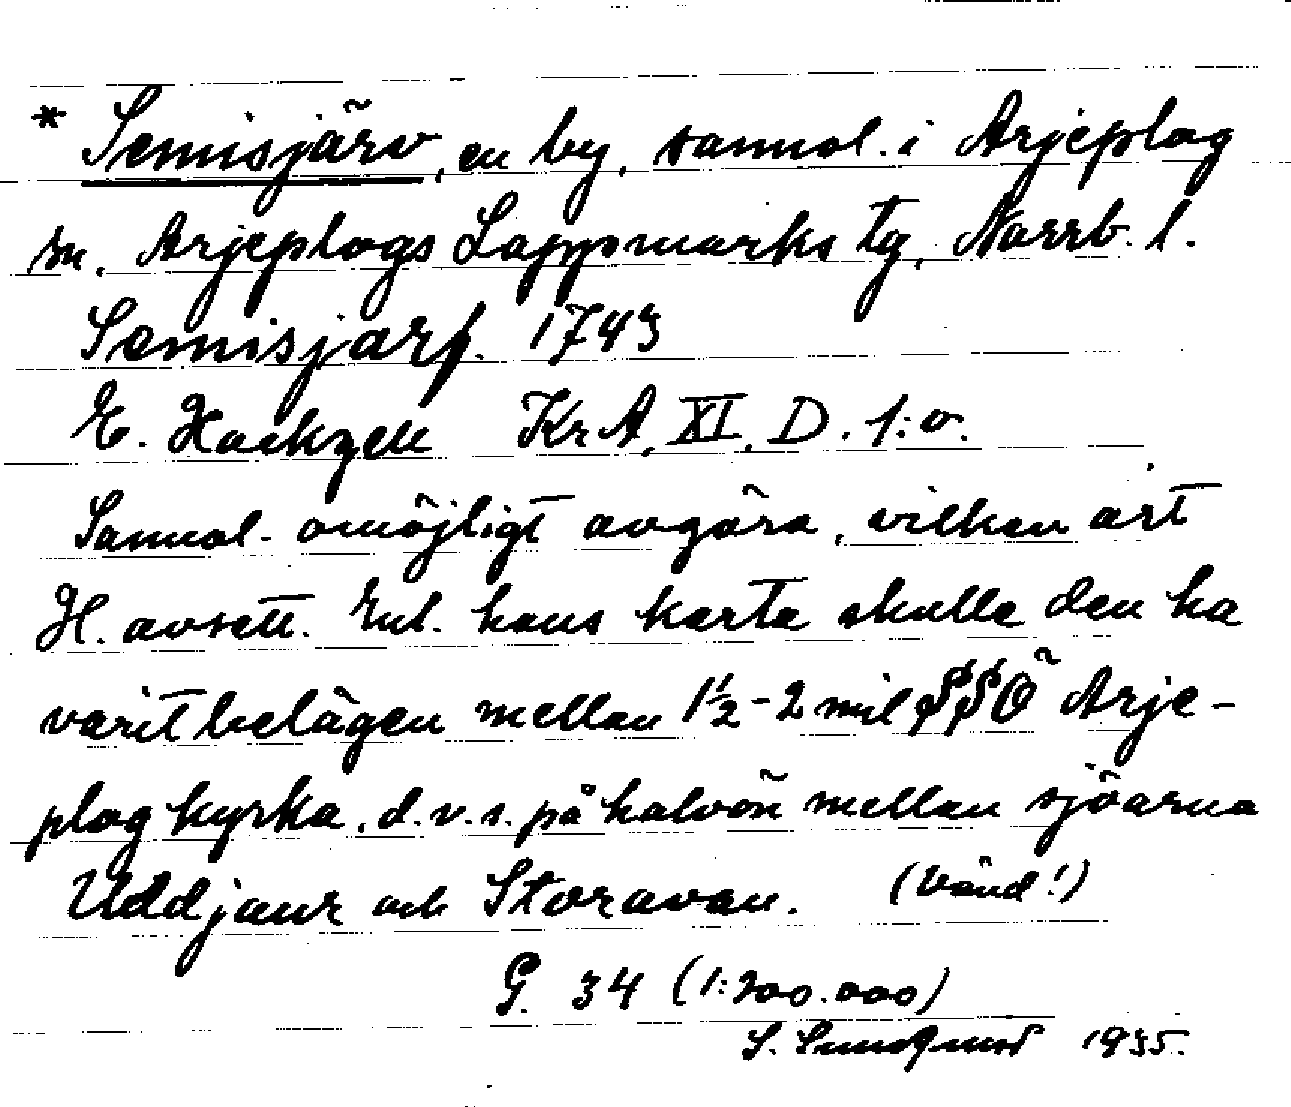 * Semisjärv, en by, sannol. i Arjeplog
sn, Arjeplogs Lappmarks tg, Norrb. l.
Semisjarf. 1743
E. Hackzell KrA, XI, D. 1:a.
Sannol. omöjligt avgöra, vilken ört
H. avsett. Enl. hans karta skulle den ha
varit belägen mellan 1½-2 mil SSÖ Arje-
plog kyrka, d.v.s. på halvön mellan sjöarna
Uddjaur och Storavan. (Vänd!)
G. 34 (1:200.000)
S. 1935.